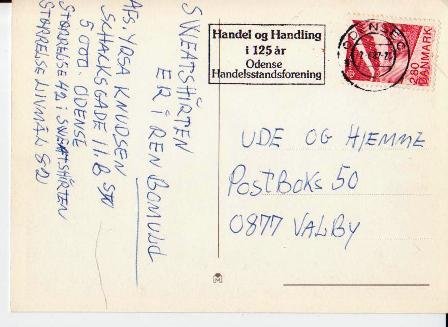 SWEATSHIRTEN
ER I REN BOMULD
ABS. YRSA KNUDSEN
SCHACKSGADE 11. B ST
5000. ODENSE
STØRRELSE 42 I SWEATSHIRTEN
STØRRELSE LIVMÅL 82
Handel og Handling
i 125 år
Odense
Handelsstandsforening
ODENSE C
280
DANMARK
UDE OG HJEMME
POSTBOKS 50
0877 VALBY
M